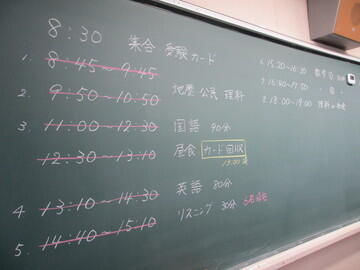 8:30 集合 受験カード
1. 8:45～9:45
2. 9:50～10:50 地歴 公民 理科
3. 11:00～12:30 国語 90分
12:30～13:10 昼食 カード回収
13:00
4. 13:10～14:30 英語 80分
リスニング 30分
5. 14:40～15:10
6. 15:20～16:20 数学①
7. 16:40～17:50
8. 18:00～19:00 理科